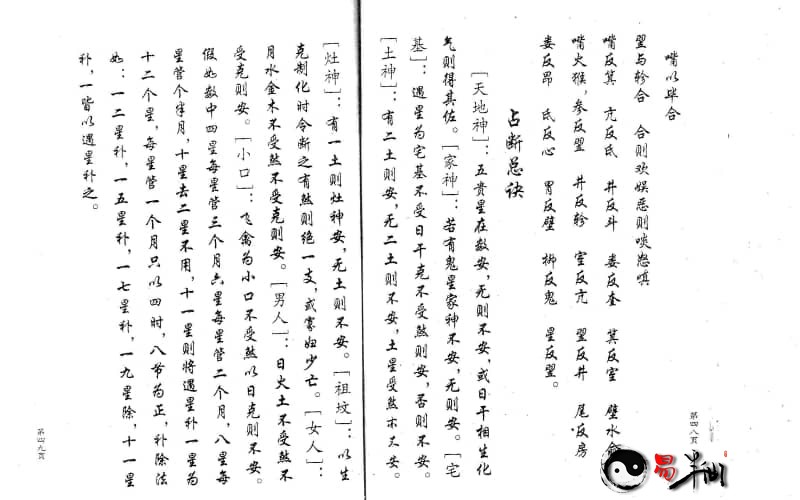 嘴以毕合
翌与轸合 合则欢娱恶则啖怒嗔
嘴反箕 亢反氐 井反斗 娄反奎 箕反室 壁水俞
嘴火猴，参反翌 井反轸 室反亢 翌反井 尾反房
娄反昂 氐反心 胃反壁 柳反鬼 星反翌。
占断总诀
[天地神]：五贵星在数安，无则不安，或日干相生化
气则得其佐。[家神]：若有鬼星家神不安，无则安。[宅
基]：遇星为宅基不受日干克不受煞则安，否则不安。
[土神]：有二土则安，无二土则不安，土星受煞亦不安。
第四八页
[灶神]：有一土则灶神安，无土则不安。[祖坟]：以生
克制化时令断之有煞则绝一支，或寡妇少亡。[女人]：
月水金木不受煞不受克则安。[男人]：日火土不受煞不
受克则安。[小口]：飞禽为小口不受煞以日克则不安。
假如数中四星每星管三个月六星每星管二个月，八星每
星管个半月，十星去二星不用，十一星则将遇星补一星实
十二个星，每星管一个月只以四时，八节为正，补除法
如：一二星补，一五星补，一七星补，一九星除，十一星
补，一皆以遇星补之。
第四九页
易